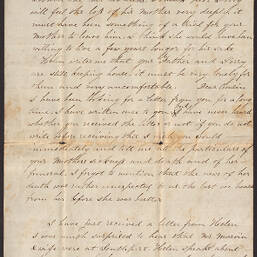 will feel the loss of his mother very deeply it
must have been something of a trial for your
Mother to leave him. I think she would have been
willing to live a few years longer for his sake
Helen writes me that your Father and
are still keeping house, it must be very lonely for
them and very uncomfortable. Dear Cousin
I have been looking for a letter from you for a long
time. I have written once to you I have never heard
whether you received the letter or not if you do not
write before receiving this I wish you would
immediately and tell me all the particulars of
your Mothers sickness and death and of her
funeral. I forgot to mention that the news of her
death was rather unexpected to us the last we heard
from her before she was better
I have just received a letter from Helen
I was much surprised to hear that
& wife were at Helen speaks about